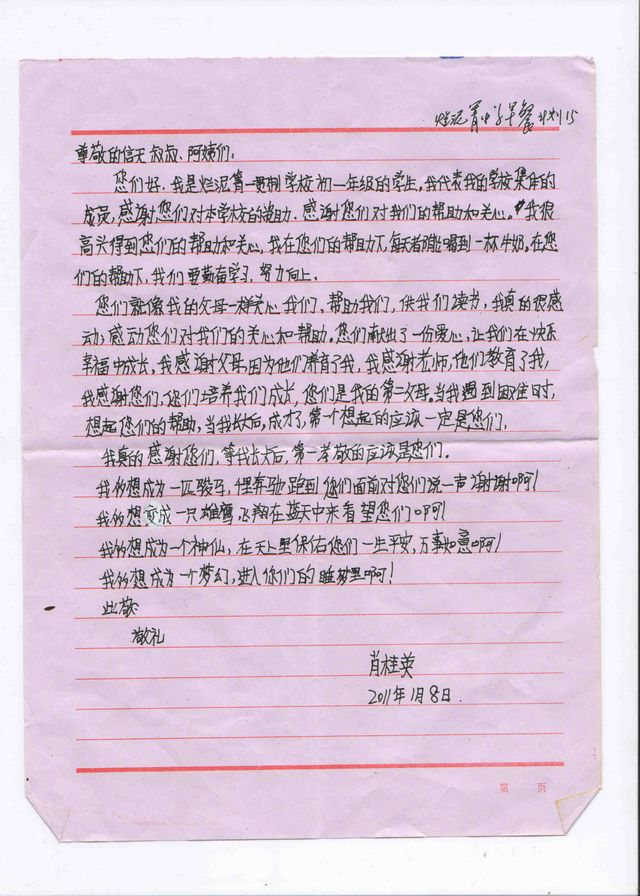 烂泥箐中学早餐计划15
尊敬的信天叔叔、阿姨们：
您们好，我是烂泥箐一贯制学校初一年级的学生。我代表我的学校集体的
成员，感谢您们对本学校的资助，感谢您们对我们的帮助和关心。我很
高兴得到您们的帮助和关心，我在您们的帮助下，每天者能喝到一杯牛奶。在您
们的帮助下，我们要勤奋学习，努力向上。
您们就像我的父母一样关心我们，帮助我们，供我们读书，我真的很感
动，感动您们对我们的关心和帮助。您们献出了一份爱心，让我们在快乐
幸福中成长，我感谢父母，因为他们养育了我，我感谢老师，他们教育了我，
我感谢您们，您们培养我们成长，您们是我的第二父母。当我遇到困难时，
想起您们的帮助，当我长大后，成才了，第一个想起的应该一定是您们，
我真的感谢您们，等我长大后，第一孝敬的应该是您们。
我多想成为一匹骏马，奔驰跑到您们面前对您们说一声谢谢啊！
我多想变成一只雄鹰，飞翔在蓝天中来看望您们啊！
我多想成为一个神仙，在天上里保佑您们一生平安，万事如意啊！
我多想成为一个梦幻，进入你们的睡梦里啊！
此致
敬礼
肖桂英
2011年1月8日
第 页